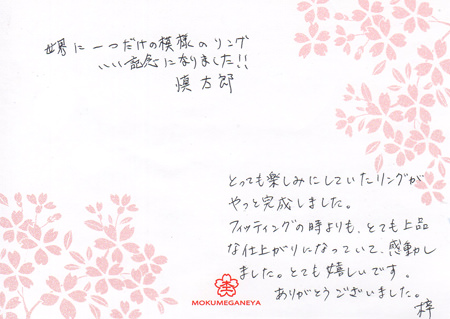 世界に一つだけの模様のリング
いい記念になりました!!
慎太郎
とっても楽しみにしていたリングが
やっと完成しました。
フィッティングの時よりも、とても上品
な仕上がりになっていて、感動し
ました。とても嬉しいです。
ありがとうございました。
梓
MOKUMEGANEYA